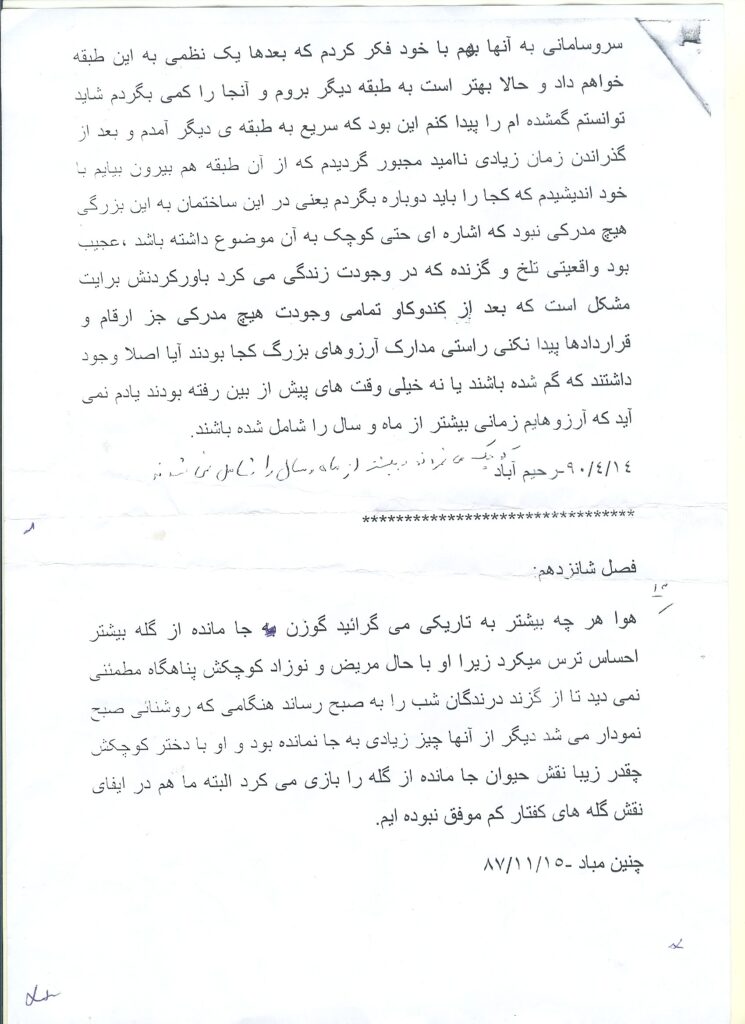 سروسامانی به آنها بهم با خود فکر کردم که بعدها یک نظمی به این طبقه
خواهم داد و حالا بهتر است به طبقه دیگر بروم و آنجا را کمی بگردم شاید
توانستم گمشده ام را پیدا کنم این بود که سریع به طبقه ی دیگر آمدم و بعد از
گذراندن زمان زیادی ناامید مجبور گردیدم که از آن طبقه هم بیرون بیایم با
خود اندیشیدم که کجا را باید دوباره بگردم یعنی در این ساختمان به این بزرگی
هیچ مدرکی نبود که اشاره ای حتی کوچک به آن موضوع داشته باشد ،عجیب
بود واقعیتی تلخ و گزنده که در وجودت زندگی می کرد باورکردنش برایت
مشکل است که بعد از کندوکاو تمامی وجودت هیچ مدرکی جز ارقام و
قراردادها پیدا نکنی راستی مدارک آرزوهای بزرگ کجا بودند آیا اصلا وجود
داشتند که گم شده باشند یا نه خیلی وقت های پیش از بین رفته بودند یادم نمی
آید که آرزوهایم زمانی بیشتر از ماه و سال را شامل شده باشند.
۹۰/۴/۱۴-رحیم آباد
بیشتر از ماه و سال را شامل نمی
********************************
فصل شانزدهم:
هوا هر چه بیشتر به تاریکی می گرائید گوزن به جا مانده از گله بیشتر
احساس ترس میکرد زیرا او با حال مریض و نوزاد کوچکش پناهگاه مطمئنی
نمی دید تا از گزند درندگان شب را به صبح رساند هنگامی که روشنائی صبح
نمودار می شد دیگر از آنها چیز زیادی به جا نمانده بود و او با دختر کوچکش
چقدر زیبا نقش حیوان جا مانده از گله را بازی می کرد البته ما هم در ایفای
نقش گله های کفتار کم موفق نبوده ایم.
چنین مباد -۸۷/۱۱/۱۵